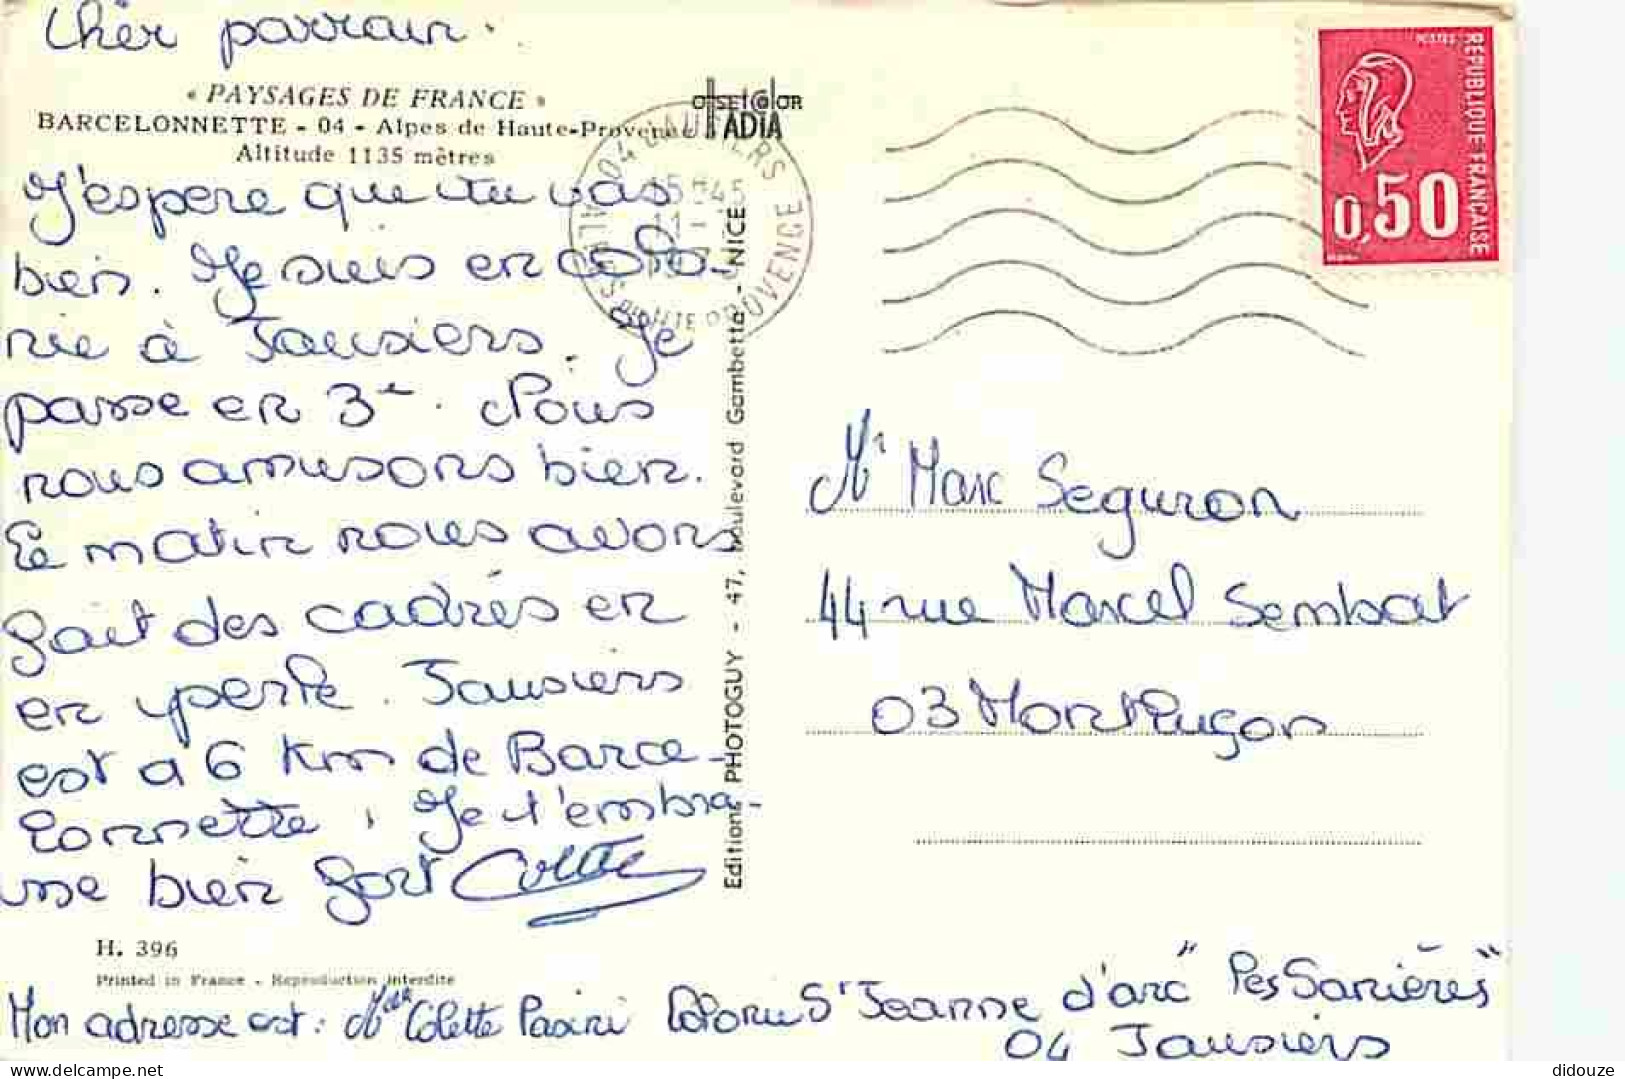 Chèr parrain.
« PAYSAGES DE FRANCE »
BARCELONNETTE - 04 - Alpes de Haute-Provence
Altitude 1135 mètres
J'espere que tu vas
bien. Je suis en colo-
nie à Jausiers. Je
passe en 3e. Nous
nous amusons bien.
Le matin nous avons
fait des cadres en
en perle. Jausiers
est à 6 Km de Barce-
lonnette. Je t'embra-
sse bien fort Colette
H. 396
Printed in France - Reproduction interdite
Mon adresse est: Mlle Colette Pasini Colonie St Jeanne d'arc "Les Sanières"
04 Jausiers
OFFSETCOLOR
IADIA
04 JAUSIERS
ALPES DE HAUTE PROVENCE
15 H 45
11 -
Editions PHOTOGUY - 47, Boulevard Gambetta - NICE
POSTES
REPUBLIQUE FRANÇAISE
0,50
Mr Marc Seguron
44 rue Marcel Sembat
03 Montluçon
didouze